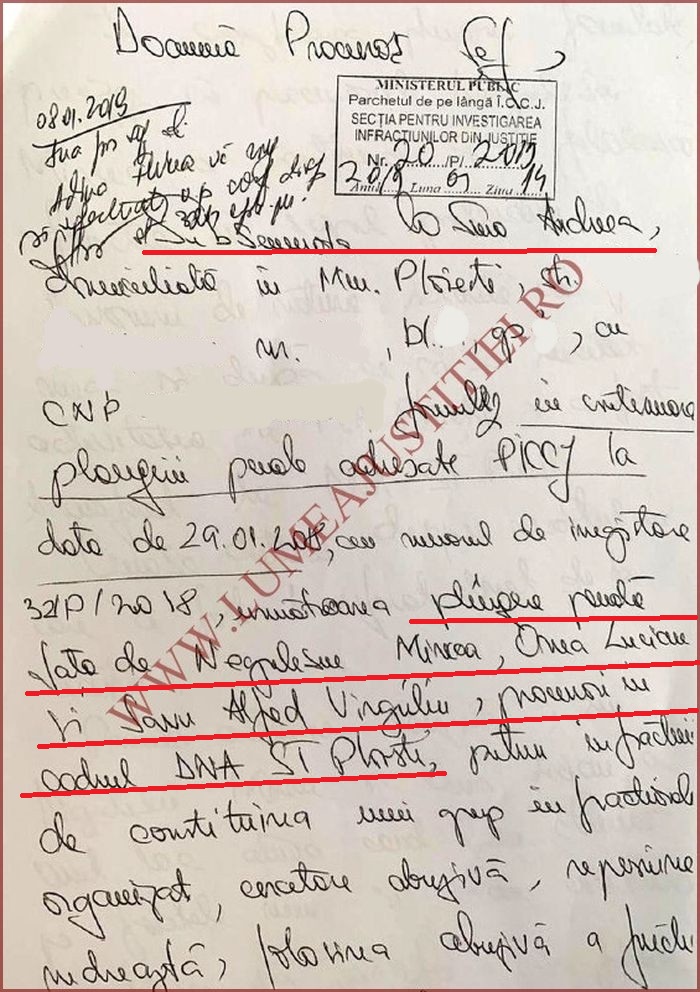 Doamnă Procuror Șef,
MINISTERUL PUBLIC
Parchetul de pe lângă Î.C.C.J.
SECȚIA PENTRU INVESTIGAREA
INFRACȚIUNILOR DIN JUSTIȚIE
Nr. 20 /P/ 2019
Anul 2019 Luna 01 Ziua 14
08.01.2019
Adina Florea vă rog
Subsemnata Andreea,
domiciliată în Mun. Ploiești, str.
nr. , bl. , ap , cu
CNP formulez în continuarea
plângerii penale adresate PÎCCJ la
data de 29.01.2018, cu numărul de înregistrare
32/P/2018, următoarea plângere penală
față de Negulescu Mircea, Onea Lucian
și Savu Alfred Virgiliu, procurori în
cadrul DNA ST Ploiești, pentru infracțiuni
de constituirea unui grup infracțional
organizat, cercetare abuzivă, represiune
nedreaptă, folosirea abuzivă a funcție
WWW.LUMEAJUSTITIEI.RO